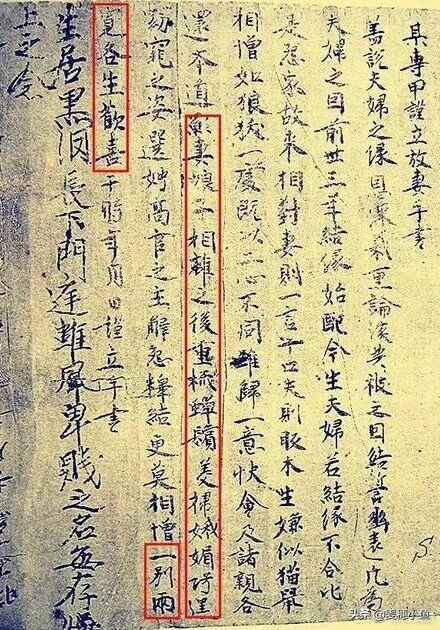 某專甲謹立放妻手書
蓋說夫婦之緣恩深義重論談共被之因結誓幽遠凡為
夫婦之因前世三年結緣始配今生夫婦若結緣不合比
是怨家故來相對妻則一言十口夫則反木生嫌似猫鼠
相憎如狼羖一處既以二心不同難歸一意快會及諸親各
還本道願妻娘子相離之後重梳蟬鬢美掃娥媚巧逞
窈窕之姿選娉高官之主解怨釋結更莫相憎一別兩
寬各生歡喜于時年月日謹立手書
生居黑長下門庭雖風卑賤之名無存
上之
S.
头条